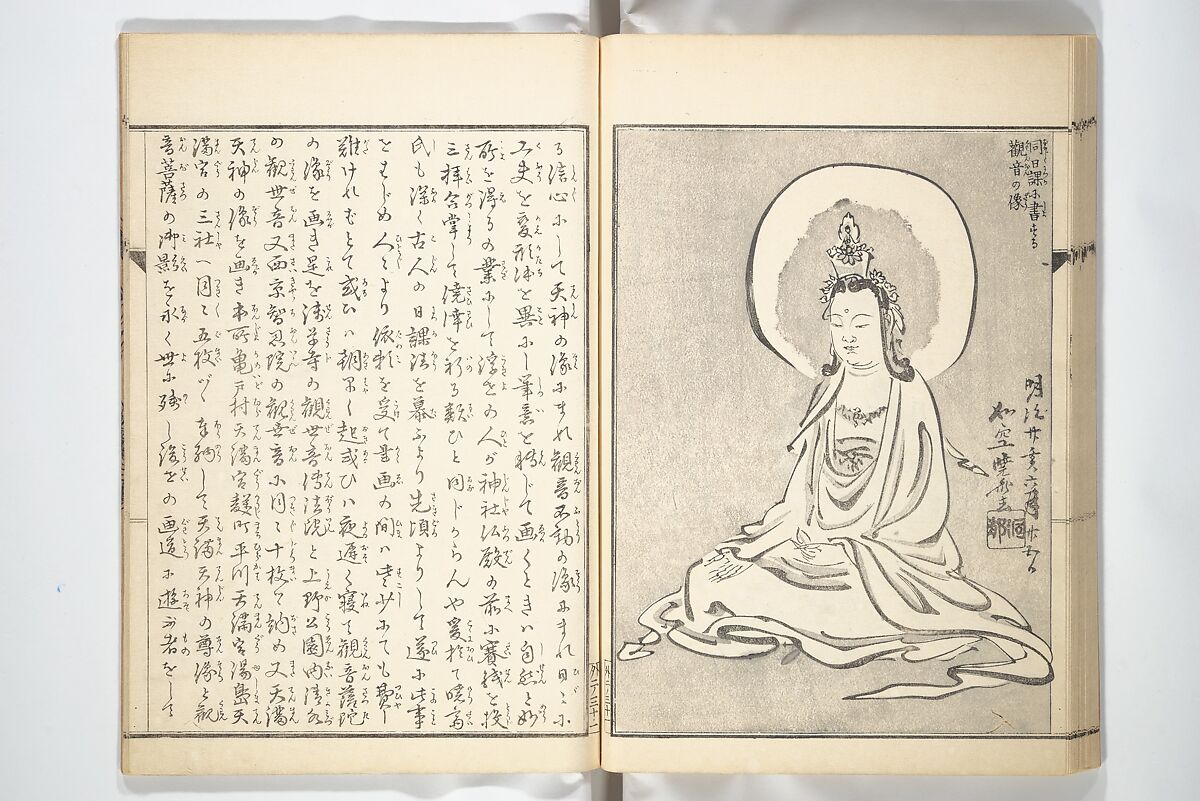 同日課に書する
観音の像
明治廿一年六月廿五日
如空暁斎
る信心にして天神の像にまれ観音不動の像にまれ日々に
工夫を変形体を異にし筆意を転じて画くときハ自然と妙
所を得るの業にして浮世の人が神社仏殿の前に賽銭を投
三拝合掌して僥倖を祈る類ひと同じからんや爰於て暁斎
氏も深く古人の日課法を慕ふより先頃よりして遂に此事
をはじめ人々より依頼を受て書画の間ハ些少にても費し
難けれむとて或ハ朝早く起或ひハ夜遅く寝て観音菩薩
の像を画き是を浅草寺の観世音伝法院と上野公園内清水
の観世音又西京智恩院の観世音に同く十枚を納め又天満
天神の像を画き本所亀戸村天満宮麹町平川天満宮湯島天
満宮の三社へ同く五枚づゝ奉納して天満天神の尊像と観
音菩薩の御影を永く世に残し後世の画道に遊ぶ者をして